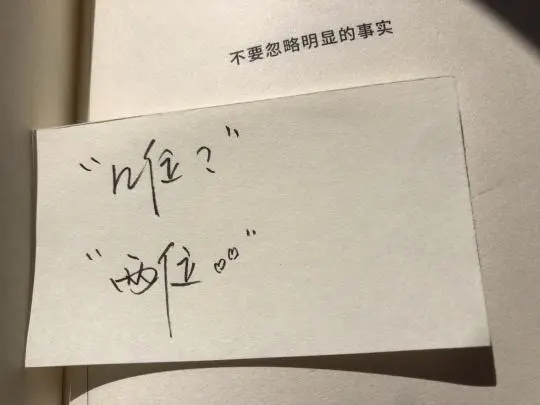 不要忽略明显的事实
“n位？”
“两位。。”